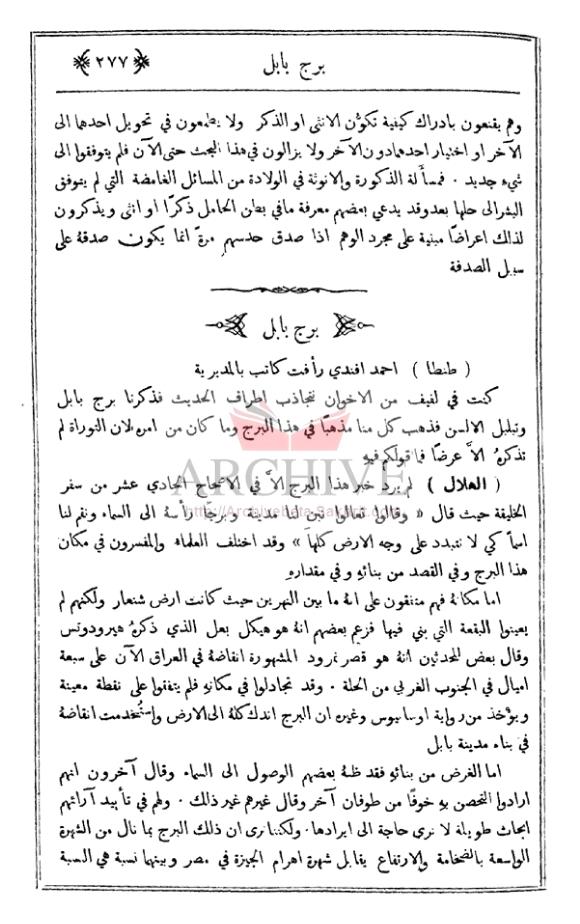 برج بابل ﴿ ٢٧٧ ﴾
وهم يقنعون بادراك كيفية تكوُّن الانثى او الذكر ولا يطمعون في تحويل احدهما الى
الآخر او اختيار احدهما دون الآخر ولا يزالون في هذا البحث حتى الآن فلم يتوفقوا الى
شيء جديد ٠ فمسألة الذكورة والانوثة في الولادة من المسائل الغامضة التي لم يتوفق
البشر الى حلها بعد وقد يدعي بعضهم معرفة ما في بطن الحامل ذكرًا او انثى ويذكرون
لذلك اعراضًا مبنية على مجرد الوهم اذا صدق حدسهم مرةً انما يكون صدقهُ على
سبيل الصدفة
برج بابل
( طنطا ) احمد افندي رأفت كاتب بالمديرية
كنت في لفيف من الاخوان نتجاذب اطراف الحديث فذكرنا برج بابل
وتبلبل الالسن فذهب كل منا مذهبًا في هذا البرج وما كان من امره لان التوراة لم
تذكرهُ الاَّ عرضًا فما قولكم فيهِ
( الهلال ) لم يرد خبر هذا البرج الاَّ في الاصحاح الحادي عشر من سفر
الخليقة حيث قال « وقالوا تعالوا نبن لنا مدينة وبرجًا رأسهُ الى السماء ونقم لنا
اسمًا كي لا نتبدد على وجه الارض كلها » وقد اختلف العلماء والمفسرون في مكان
هذا البرج وفي القصد من بنائهِ وفي مقدارهِ
اما مكانهُ فهم متفقون على انهُ ما بين النهرين حيث كانت ارض شنعار ولكنهم لم
يعينوا البقعة التي بني فيها فزعم بعضهم انهُ هو هيكل بعل الذي ذكرهُ هيرودوتس
وقال بعض المحدثين انهُ هو قصر نمرود المشهورة انقاضهُ في العراق الآن على سبعة
اميال في الجنوب الغربي من الحلة ٠ وقد تجادلوا في مكانهِ فلم يتفقوا على نقطة معينة
ويؤخذ من رواية اوسابيوس وغيره ان البرج اندك كلهُ الى الارض واستُخدمت انقاضهُ
في بناء مدينة بابل
اما الغرض من بنائهِ فقد ظنهُ بعضهم الوصول الى السماء وقال آخرون انهم
ارادوا التحصن بهِ خوفًا من طوفان آخر وقال غيرهم غير ذلك ٠ ولهم في تأييد آرائهم
ابحاث طويلة لا نرى حاجة الى ايرادها ٠ ولكننا نرى ان ذلك البرج بما نال من الشهرة
الواسعة بالضخامة والارتفاع يقابل شهرة اهرام الجيزة في مصر وبينهما نسبة هي النسبة
ARCHIVE